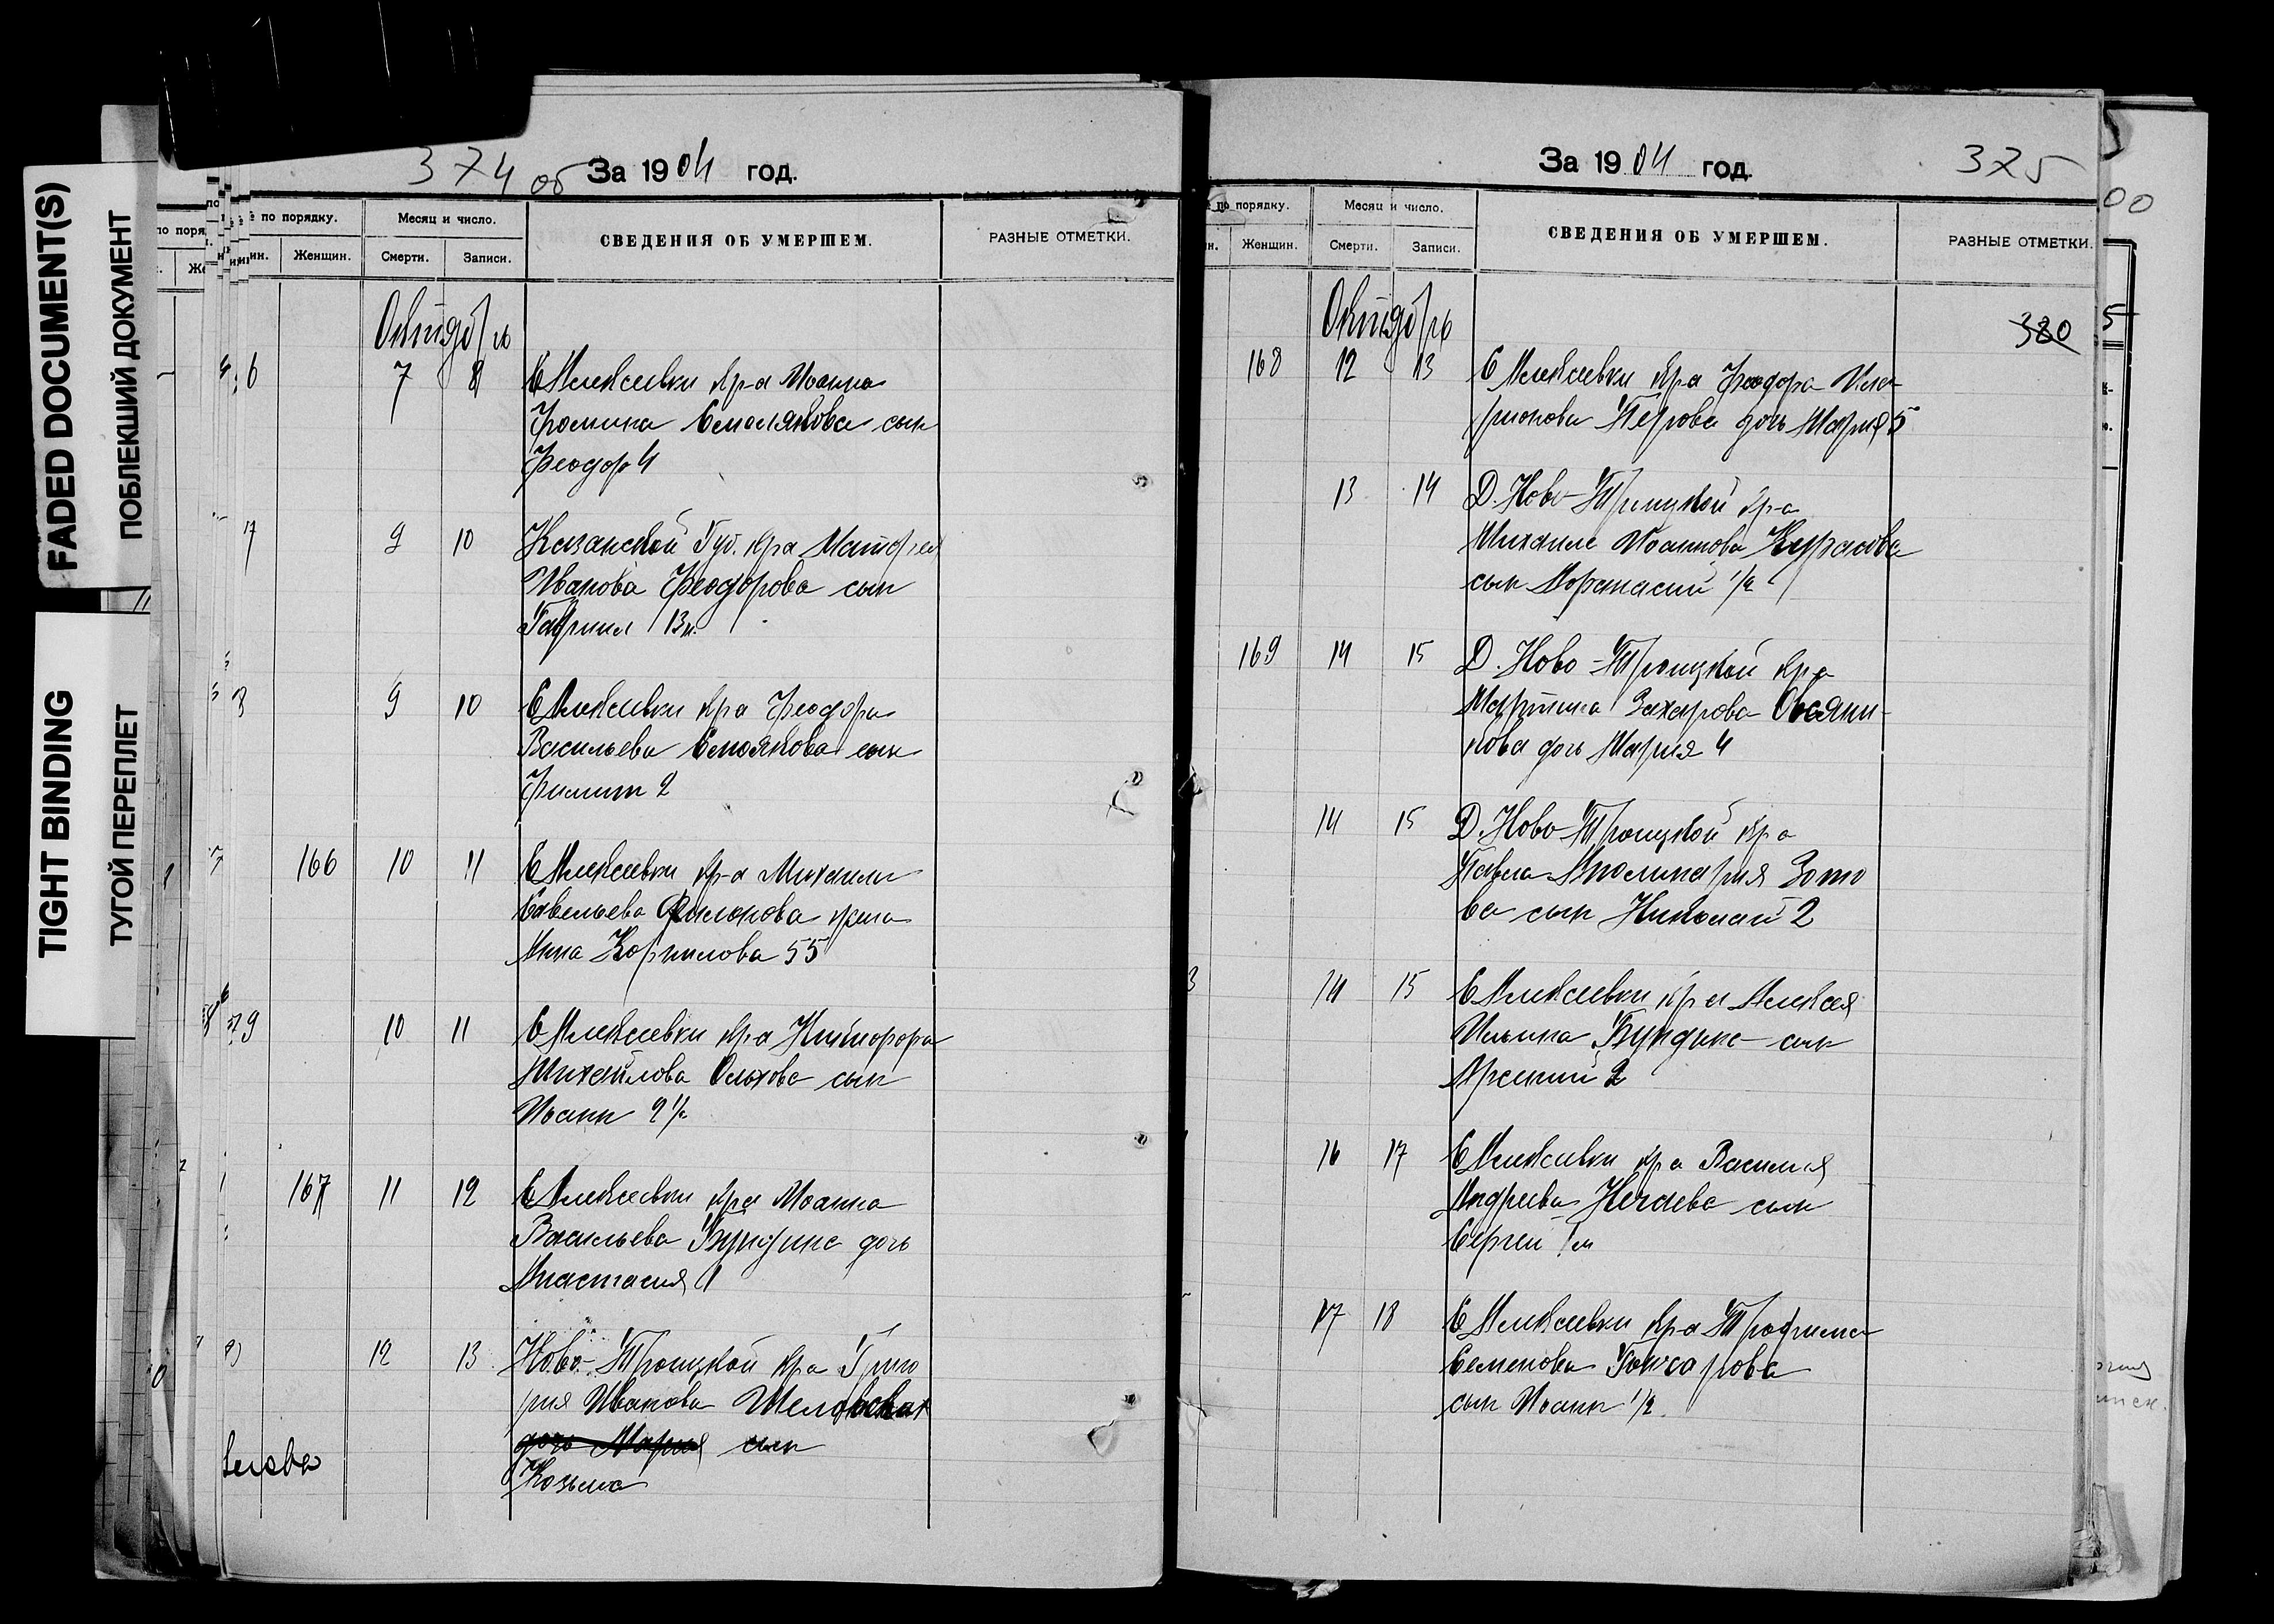 FADED DOCUMENT(S)
ПОБЛЕКШИЙ ДОКУМЕНТ
TIGHT BINDING
ТУГОЙ ПЕРЕПЛЕТ
374 об За 1904 год.
по порядку. Месяц и число. СВЕДЕНИЯ ОБ УМЕРШЕМ. РАЗНЫЕ ОТМЕТКИ.
Женщин. Смерти. Записи.
Октябрь
6 7 8 С Алексеевки кр-а Иоанна
Фомина Смолякова сын
Феодор 4
7 9 10 Казанской Губ. кр-а Матфея
Иванова Феодорова сын
Гавриил 13 н.
8 9 10 С Алексеевки кр-а Феодора
Васильева Смолякова сын
Филипп 2
166 10 11 С Алексеевки кр-а Михаила
Савельева Филонова жена
Анна Корнилова 55
9 10 11 С Алексеевки кр-а Никифора
Михайлова Ольхова сын
Иоанн 2 1/2
167 11 12 С Алексеевки кр-а Иоанна
Васильева Бундина дочь
Анастасия 1
12 13 Ново-Троицкой кр-а Григо
рия Иванова
дочь Мария сын
Козьма
За 1904 год. 375
по порядку. Месяц и число. СВЕДЕНИЯ ОБ УМЕРШЕМ. РАЗНЫЕ ОТМЕТКИ.
Женщин. Смерти. Записи.
Октябрь
380
168 12 13 С Алексеевки кр-а Феодора Ила-
рионова Перова дочь Мария 5
13 14 Д. Ново-Троицкой кр-а
Михаила Иоаннова Курасова
сын Афанасий 1/2
169 14 15 Д. Ново-Троицкой кр-а
Мартина Захарова Овсяни-
кова дочь Мария 4
14 15 Д. Ново-Троицкой кр-а
Павла Аполинария Зото
ва сын Николай 2
3 14 15 С Алексеевки кр-а Алексея
Ильина Бундина сын
Арсений 2
16 17 С Алексеевки кр-а Василия
Андреева Нечаева сын
Сергей 1 м
17 18 С Алексеевки кр-а Трофима
Семенова Гончарова
сын Иоанн 1/2